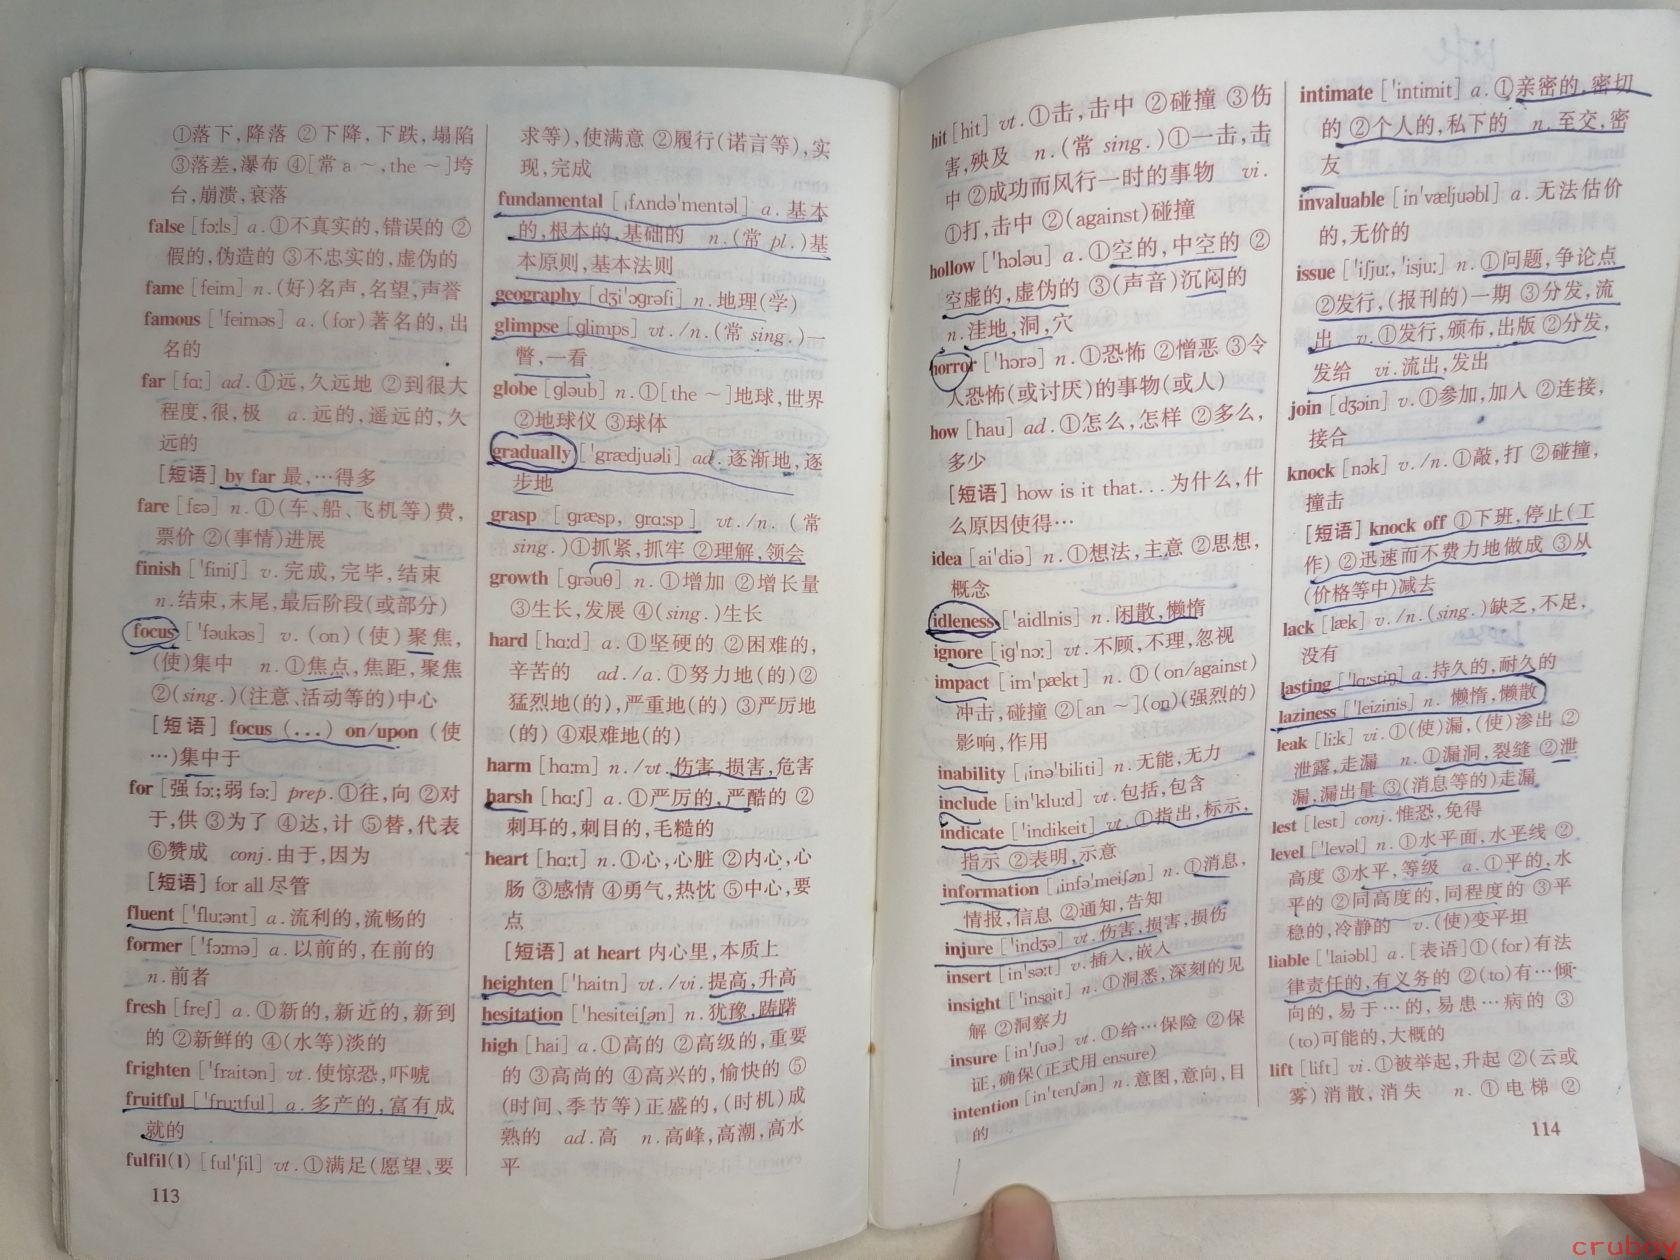 ①落下,降落 ②下降,下跌,塌陷
③落差,瀑布 ④[常 a ～,the ～]垮
台,崩溃,衰落
false [fɔ:ls] a.①不真实的,错误的 ②
假的,伪造的 ③不忠实的,虚伪的
fame [feim] n.(好)名声,名望,声誉
famous ['feiməs] a.(for)著名的,出
名的
far [fɑ:] ad.①远,久远地 ②到很大
程度,很,极 a.远的,遥远的,久
远的
[短语] by far 最,…得多
fare [fεə] n.①(车、船、飞机等)费,
票价 ②(事情)进展
finish ['finiʃ] v.完成,完毕,结束
n.结束,末尾,最后阶段(或部分)
focus ['fəukəs] v.(on)(使)聚焦,
(使)集中 n.①焦点,焦距,聚焦
②(sing.)(注意、活动等的)中心
[短语] focus (...) on/upon (使
…)集中于
for [强 fɔ:;弱 fə:] prep.①往,向 ②对
于,供 ③为了 ④达,计 ⑤替,代表
⑥赞成 conj.由于,因为
[短语] for all 尽管
fluent ['flu:ənt] a.流利的,流畅的
former ['fɔ:mə] a.以前的,在前的
n.前者
fresh [freʃ] a.①新的,新近的,新到
的 ②新鲜的 ④(水等)淡的
frighten ['fraitən] vt.使惊恐,吓唬
fruitful ['fru:tful] a.多产的,富有成
就的
fulfil(l) [ful'fil] vt.①满足(愿望、要
113
求等),使满意 ②履行(诺言等),实
现,完成
fundamental [ˌfʌndə'mentəl] a.基本
的,根本的,基础的 n.(常 pl.)基
本原则,基本法则
geography [dʒi'ɔgrəfi] n.地理(学)
glimpse [glimps] vt./n.(常 sing.)一
瞥,一看
globe [gləub] n.①[the ～]地球,世界
②地球仪 ③球体
gradually ['grædjuəli] ad.逐渐地,逐
步地
grasp [græsp, grɑ:sp] vt./n.(常
sing.)①抓紧,抓牢 ②理解,领会
growth [grəuθ] n.①增加 ②增长量
③生长,发展 ④(sing.)生长
hard [hɑ:d] a.①坚硬的 ②困难的,
辛苦的 ad./a.①努力地(的)②
猛烈地(的),严重地(的) ③严厉地
(的) ④艰难地(的)
harm [hɑ:m] n./vt.伤害,损害,危害
harsh [hɑ:ʃ] a.①严厉的,严酷的 ②
刺耳的,刺目的,毛糙的
heart [hɑ:t] n.①心,心脏 ②内心,心
肠 ③感情 ④勇气,热忱 ⑤中心,要
点
[短语] at heart 内心里,本质上
heighten ['haitn] vt./vi.提高,升高
hesitation ['hesiteiʃən] n.犹豫,踌躇
high [hai] a.①高的 ②高级的,重要
的 ③高尚的 ④高兴的,愉快的 ⑤
(时间、季节等)正盛的,(时机)成
熟的 ad.高 n.高峰,高潮,高水
平
hit [hit] vt.①击,击中 ②碰撞 ③伤
害,殃及 n.(常 sing.)①一击,击
中 ②成功而风行一时的事物 vi.
①打,击中 ②(against)碰撞
hollow ['hɔləu] a.①空的,中空的 ②
空虚的,虚伪的 ③(声音)沉闷的
n.洼地,洞,穴
horror ['hɔrə] n.①恐怖 ②憎恶 ③令
人恐怖(或讨厌)的事物(或人)
how [hau] ad.①怎么,怎样 ②多么,
多少
[短语] how is it that...为什么,什
么原因使得…
idea [ai'diə] n.①想法,主意 ②思想,
概念
idleness ['aidlnis] n.闲散,懒惰
ignore [ig'nɔ:] vt.不顾,不理,忽视
impact [im'pækt] n.①(on/against)
冲击,碰撞 ②[an ～](on)(强烈的)
影响,作用
inability [ˌinə'biliti] n.无能,无力
include [in'klu:d] vt.包括,包含
indicate ['indikeit] vt.①指出,标示,
指示 ②表明,示意
information [ˌinfə'meiʃən] n.①消息,
情报,信息 ②通知,告知
injure ['indʒə] vt.伤害,损害,损伤
insert [in'sə:t] v.插入,嵌入
insight ['insait] n.①洞悉,深刻的见
解 ②洞察力
insure [in'ʃuə] vt.①给…保险 ②保
证,确保(正式用 ensure)
intention [in'tenʃən] n.意图,意向,目
的
intimate ['intimit] a.①亲密的,密切
的 ②个人的,私下的 n.至交,密
友
invaluable [in'væljuəbl] a.无法估价
的,无价的
issue ['iʃju:,'isju:] n.①问题,争论点
②发行,(报刊的)一期 ③分发,流
出 v.①发行,颁布,出版 ②分发,
发给 vi.流出,发出
join [dʒɔin] v.①参加,加入 ②连接,
接合
knock [nɔk] v./n.①敲,打 ②碰撞,
撞击
[短语] knock off ①下班,停止(工
作) ②迅速而不费力地做成 ③从
(价格等中)减去
lack [læk] v./n.(sing.)缺乏,不足,
没有
lasting ['lɑ:stiŋ] a.持久的,耐久的
laziness ['leizinis] n.懒惰,懒散
leak [li:k] vi.①(使)漏,(使)渗出 ②
泄露,走漏 n.①漏洞,裂缝 ②泄
漏,漏出量 ③(消息等的)走漏
lest [lest] conj.惟恐,免得
level ['levəl] n.①水平面,水平线 ②
高度 ③水平,等级 a.①平的,水
平的 ②同高度的,同程度的 ③平
稳的,冷静的 v.(使)变平坦
liable ['laiəbl] a.[表语]①(for)有法
律责任的,有义务的 ②(to)有…倾
向的,易于…的,易患…病的 ③
(to)可能的,大概的
lift [lift] vi.①被举起,升起 ②(云或
雾)消散,消失 n.①电梯 ②
114
cruboy